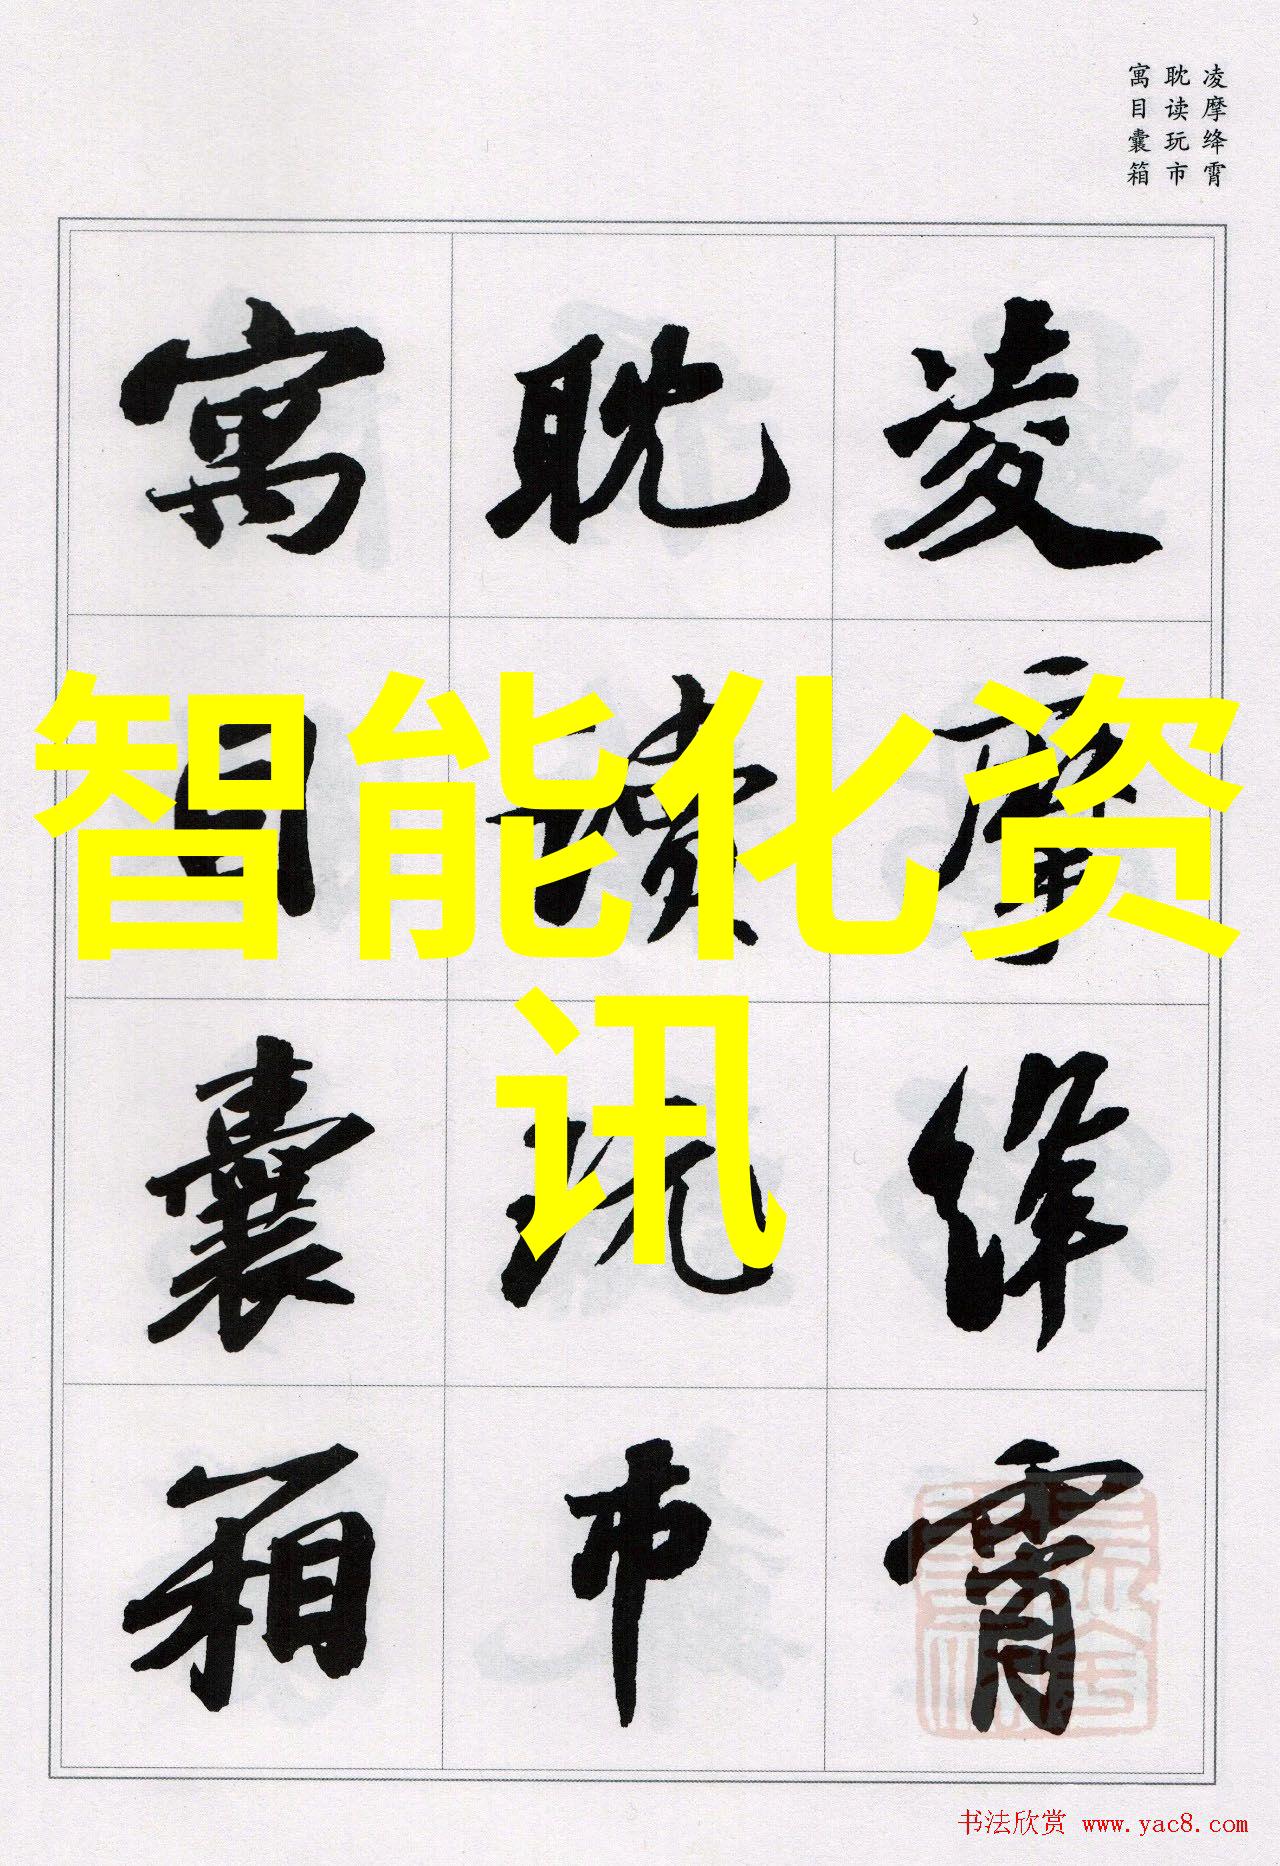 凌摩绛霄
耽读玩市
寓目囊箱
凌摩绛霄
耽读玩市
寓目囊箱
智能化资
讯
书法欣赏 www.yac8.com